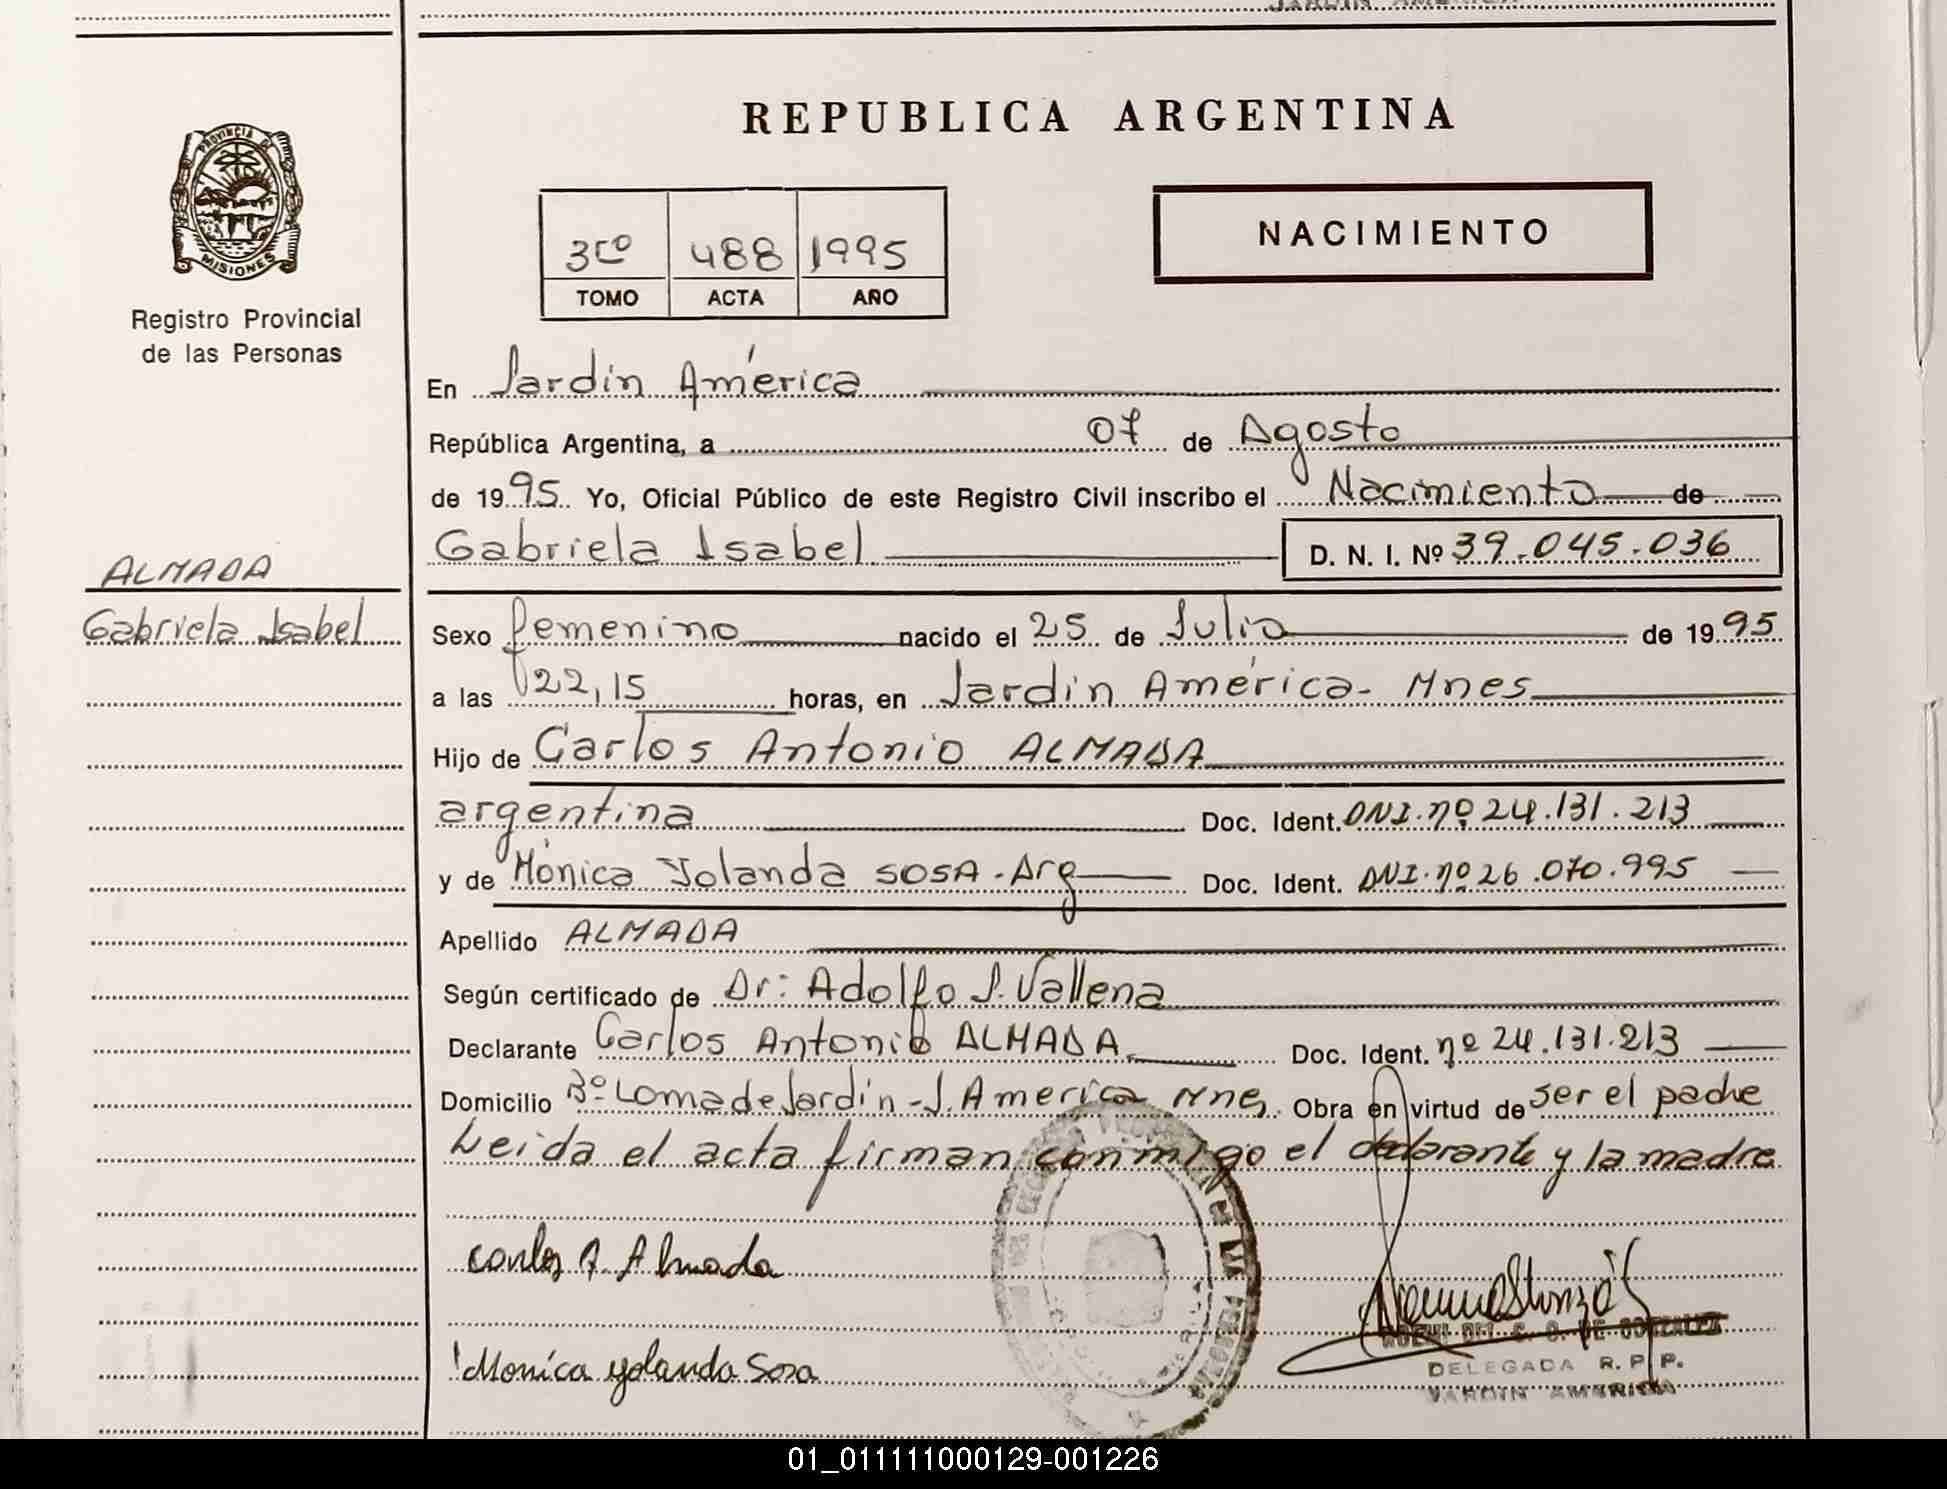 JARDIN AMERICA
REPUBLICA ARGENTINA
PROVINCIA DE
MISIONES
Registro Provincial
de las Personas
3ro 488 1995
TOMO ACTA AÑO
NACIMIENTO
En Jardín América
República Argentina, a 07 de Agosto
de 1995 Yo, Oficial Público de este Registro Civil inscribo el Nacimiento de
Gabriela Isabel D. N. I. Nº 39.045.036
ALMADA
Gabriela Isabel
Sexo femenino nacido el 25 de Julio de 1995
a las 22,15 horas, en Jardín América - Mnes
Hijo de Carlos Antonio ALMADA
argentina Doc. Ident. DNI.nº 24.131.213
y de Mónica Yolanda SOSA - Arg Doc. Ident. DNI.nº 26.070.995
Apellido ALMADA
Según certificado de Dr: Adolfo J. Vallena
Declarante Carlos Antonio ALMADA Doc. Ident. nº 24.131.213
Domicilio Bº Loma de Jardín - J. America Mnes Obra en virtud de ser el padre
Leida el acta firman conmigo el declarante y la madre
Carlos A. Almada
Monica Yolanda Sosa
DE GONZALEZ
DELEGADA R. P. P.
JARDIN AMERICA
01_011111000129-001226